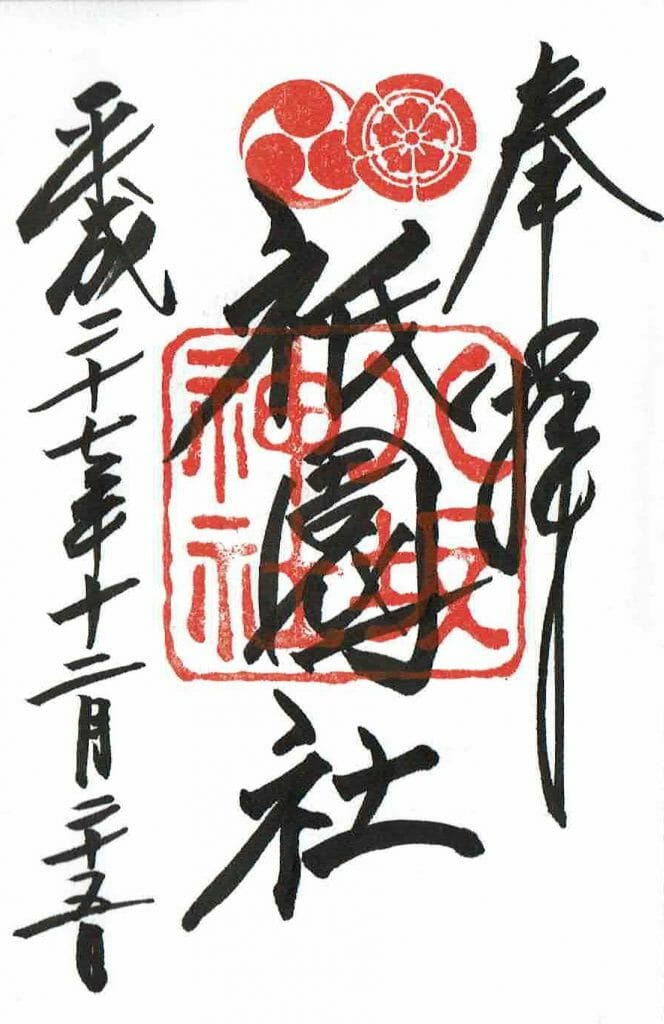 奉拝
祇園社
八坂
神社
平成二十七年十二月二十五日